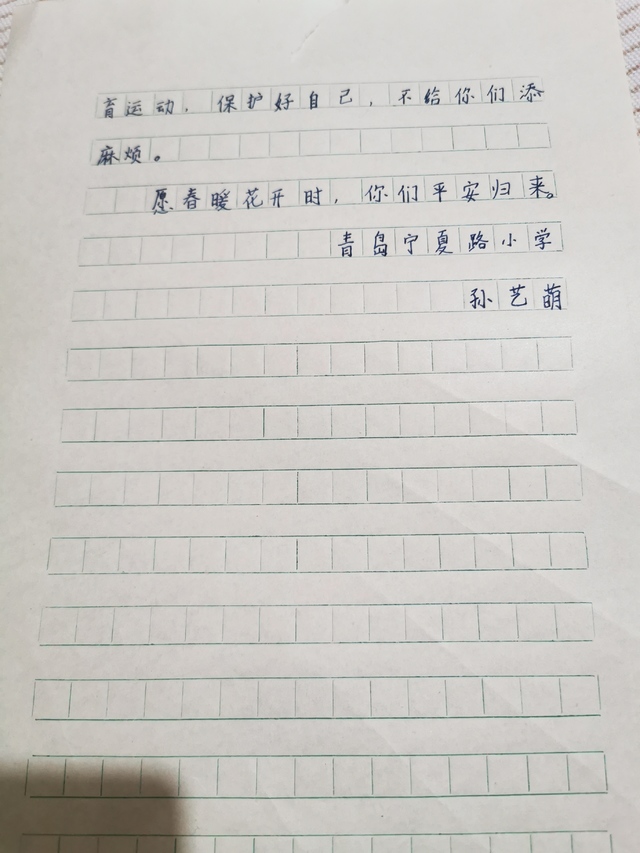 育运动，保护好自己，不给你们添
麻烦。
愿春暖花开时，你们平安归来。
青岛宁夏路小学
孙艺萌